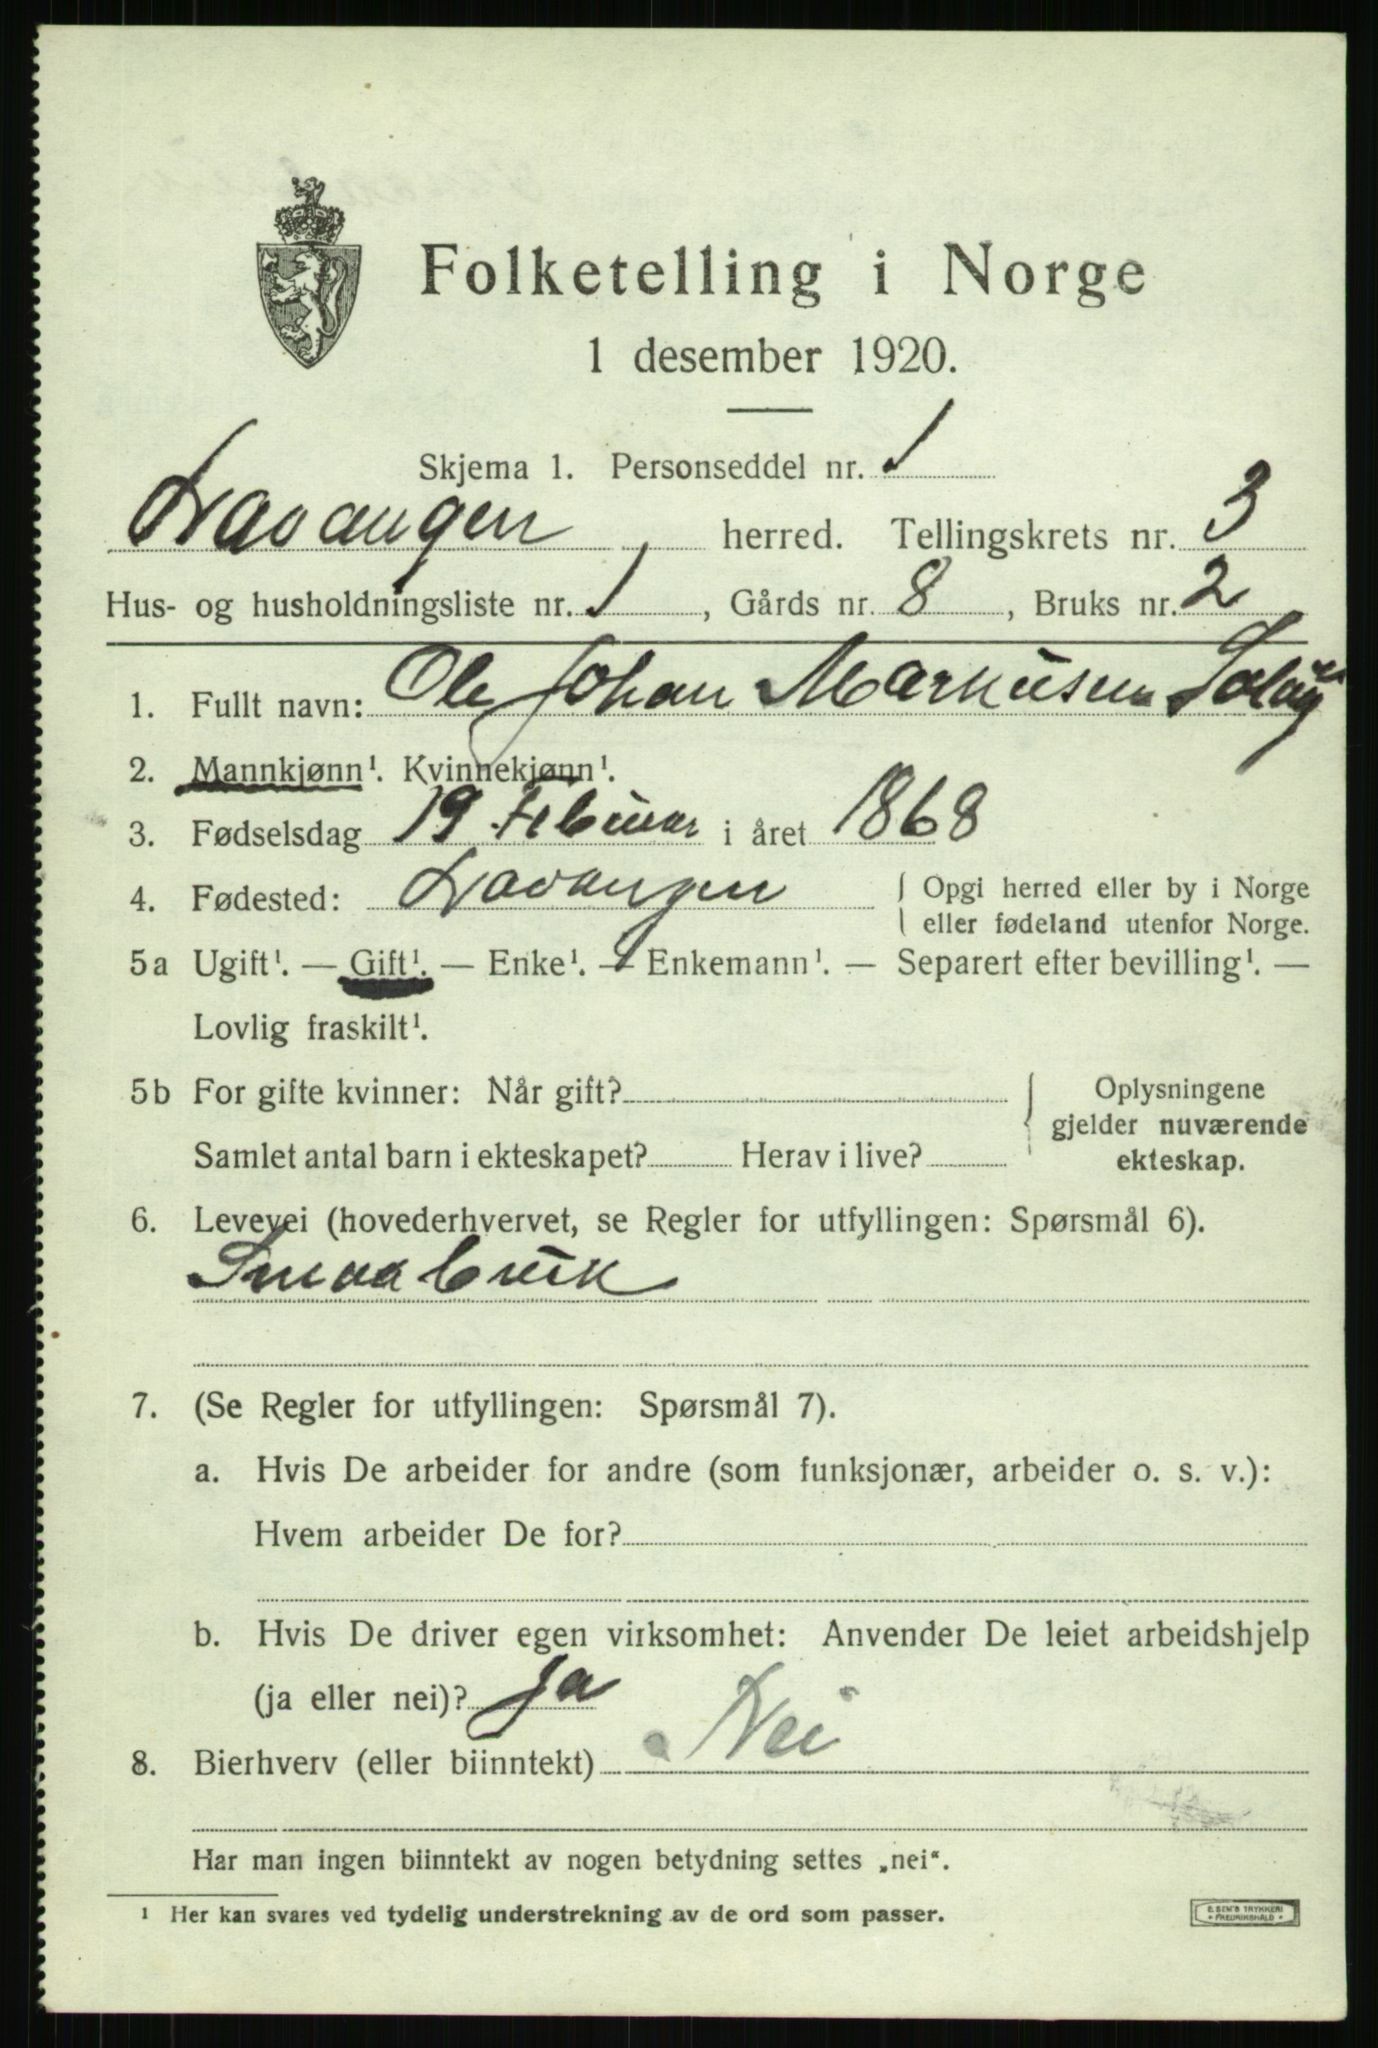 Folketelling i Norge
1 desember 1920.
Skjema 1. Personseddel nr. 1
Lavangen herred. Tellingskrets nr. 3
Hus- og husholdningsliste nr. 1, Gårds nr. 8, Bruks nr. 2
1. Fullt navn: Ole Johan Markusen
2. Mannkjønn¹. Kvinnekjønn¹.
3. Fødselsdag 19 Februar i året 1868
4. Fødested: Lavangen { Opgi herred eller by i Norge
eller fødeland utenfor Norge.
5a Ugift¹. — Gift¹. — Enke¹. — Enkemann¹. — Separert efter bevilling¹. —
Lovlig fraskilt¹.
5b For gifte kvinner: Når gift? { Oplysningene
gjelder nuværende
Samlet antal barn i ekteskapet? Herav i live? ekteskap.
6. Levevei (hovederhvervet, se Regler for utfyllingen: Spørsmål 6).
Smaabruk
7. (Se Regler for utfyllingen: Spørsmål 7).
a. Hvis De arbeider for andre (som funksjonær, arbeider o. s. v.):
Hvem arbeider De for?
b. Hvis De driver egen virksomhet: Anvender De leiet arbeidshjelp
(ja eller nei)? ja
8. Bierhverv (eller biinntekt) Nei
Har man ingen biinntekt av nogen betydning settes „nei“.
¹ Her kan svares ved tydelig understrekning av de ord som passer.
E. SEM'S TRYKKERI
FREDRIKSHALD